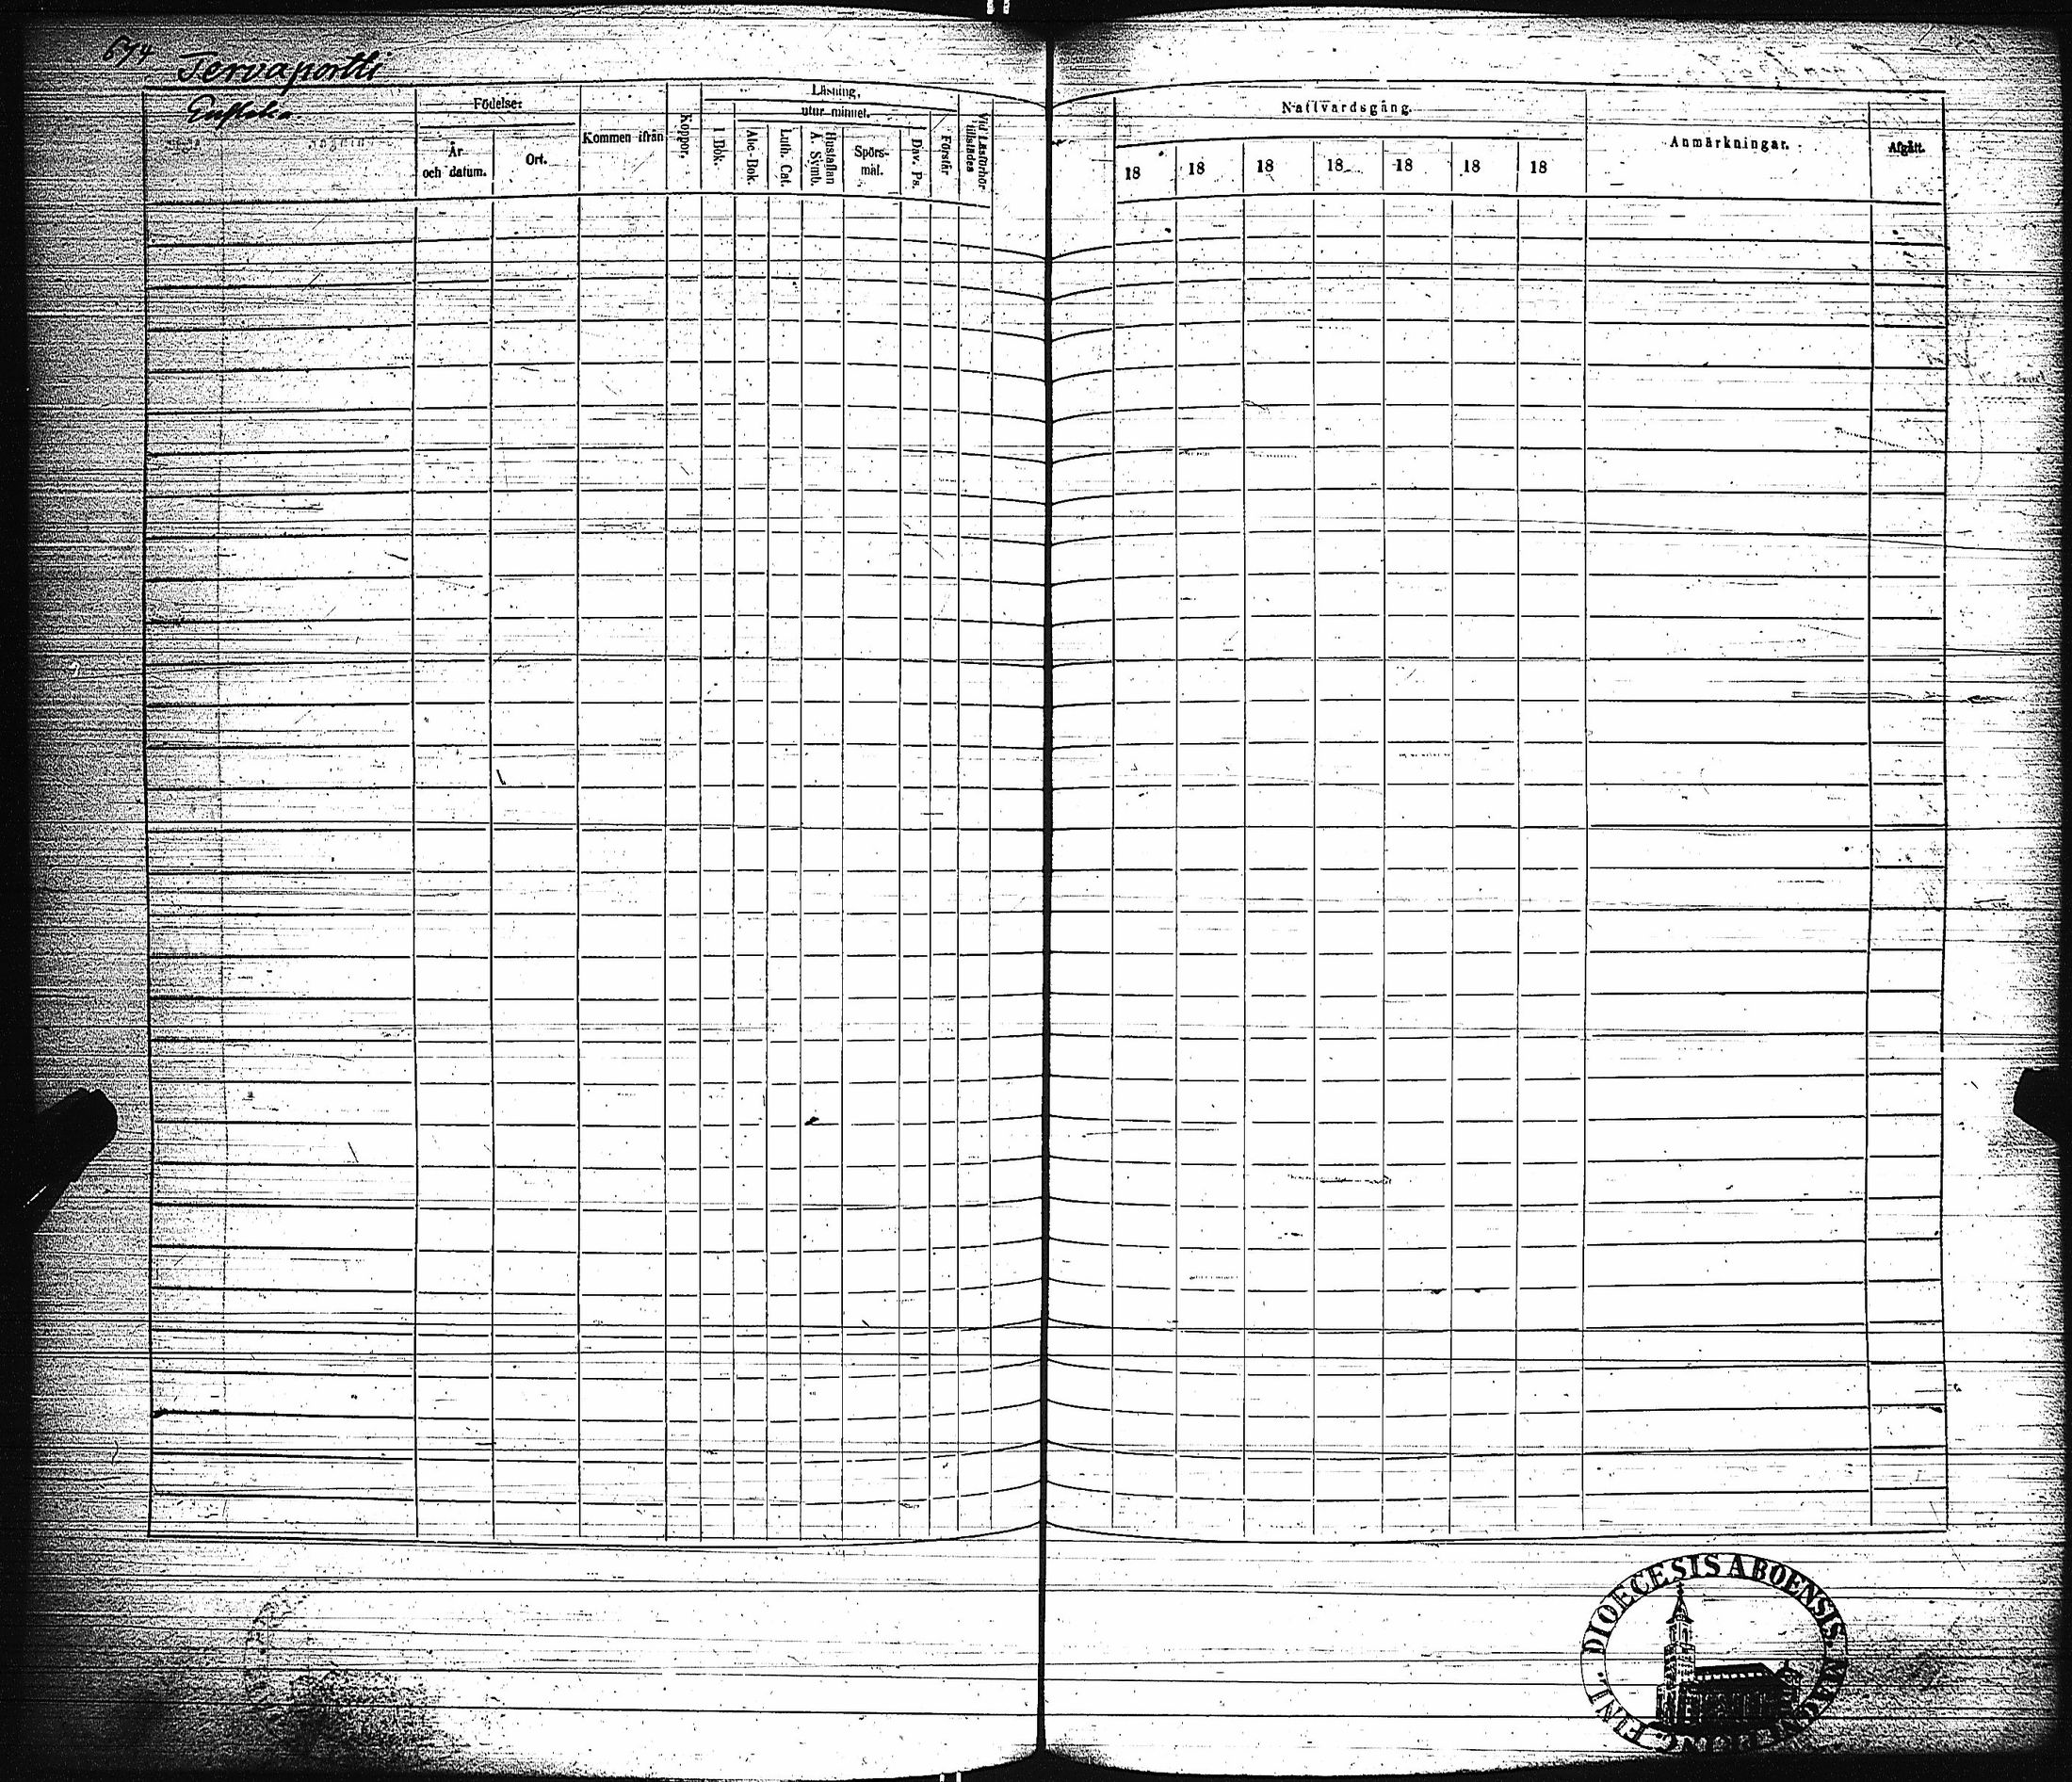 674
Tervaportti
Födelse:
År och datum.
Ort.
Kommen ifrån
Koppor.
Läsning,
utur minnet.
I Bok.
Abc-Bok.
Luth. Cat.
Hustaflan
A. Symb.
Spörs-
mål.
Dav. Ps.
Förstår
Vid Läsförhör
tillstädes
Nattvardsgång.
18 18 18 18 18 18 18
Anmärkningar.
Afgått.
DIOECESIS ABOENSIS